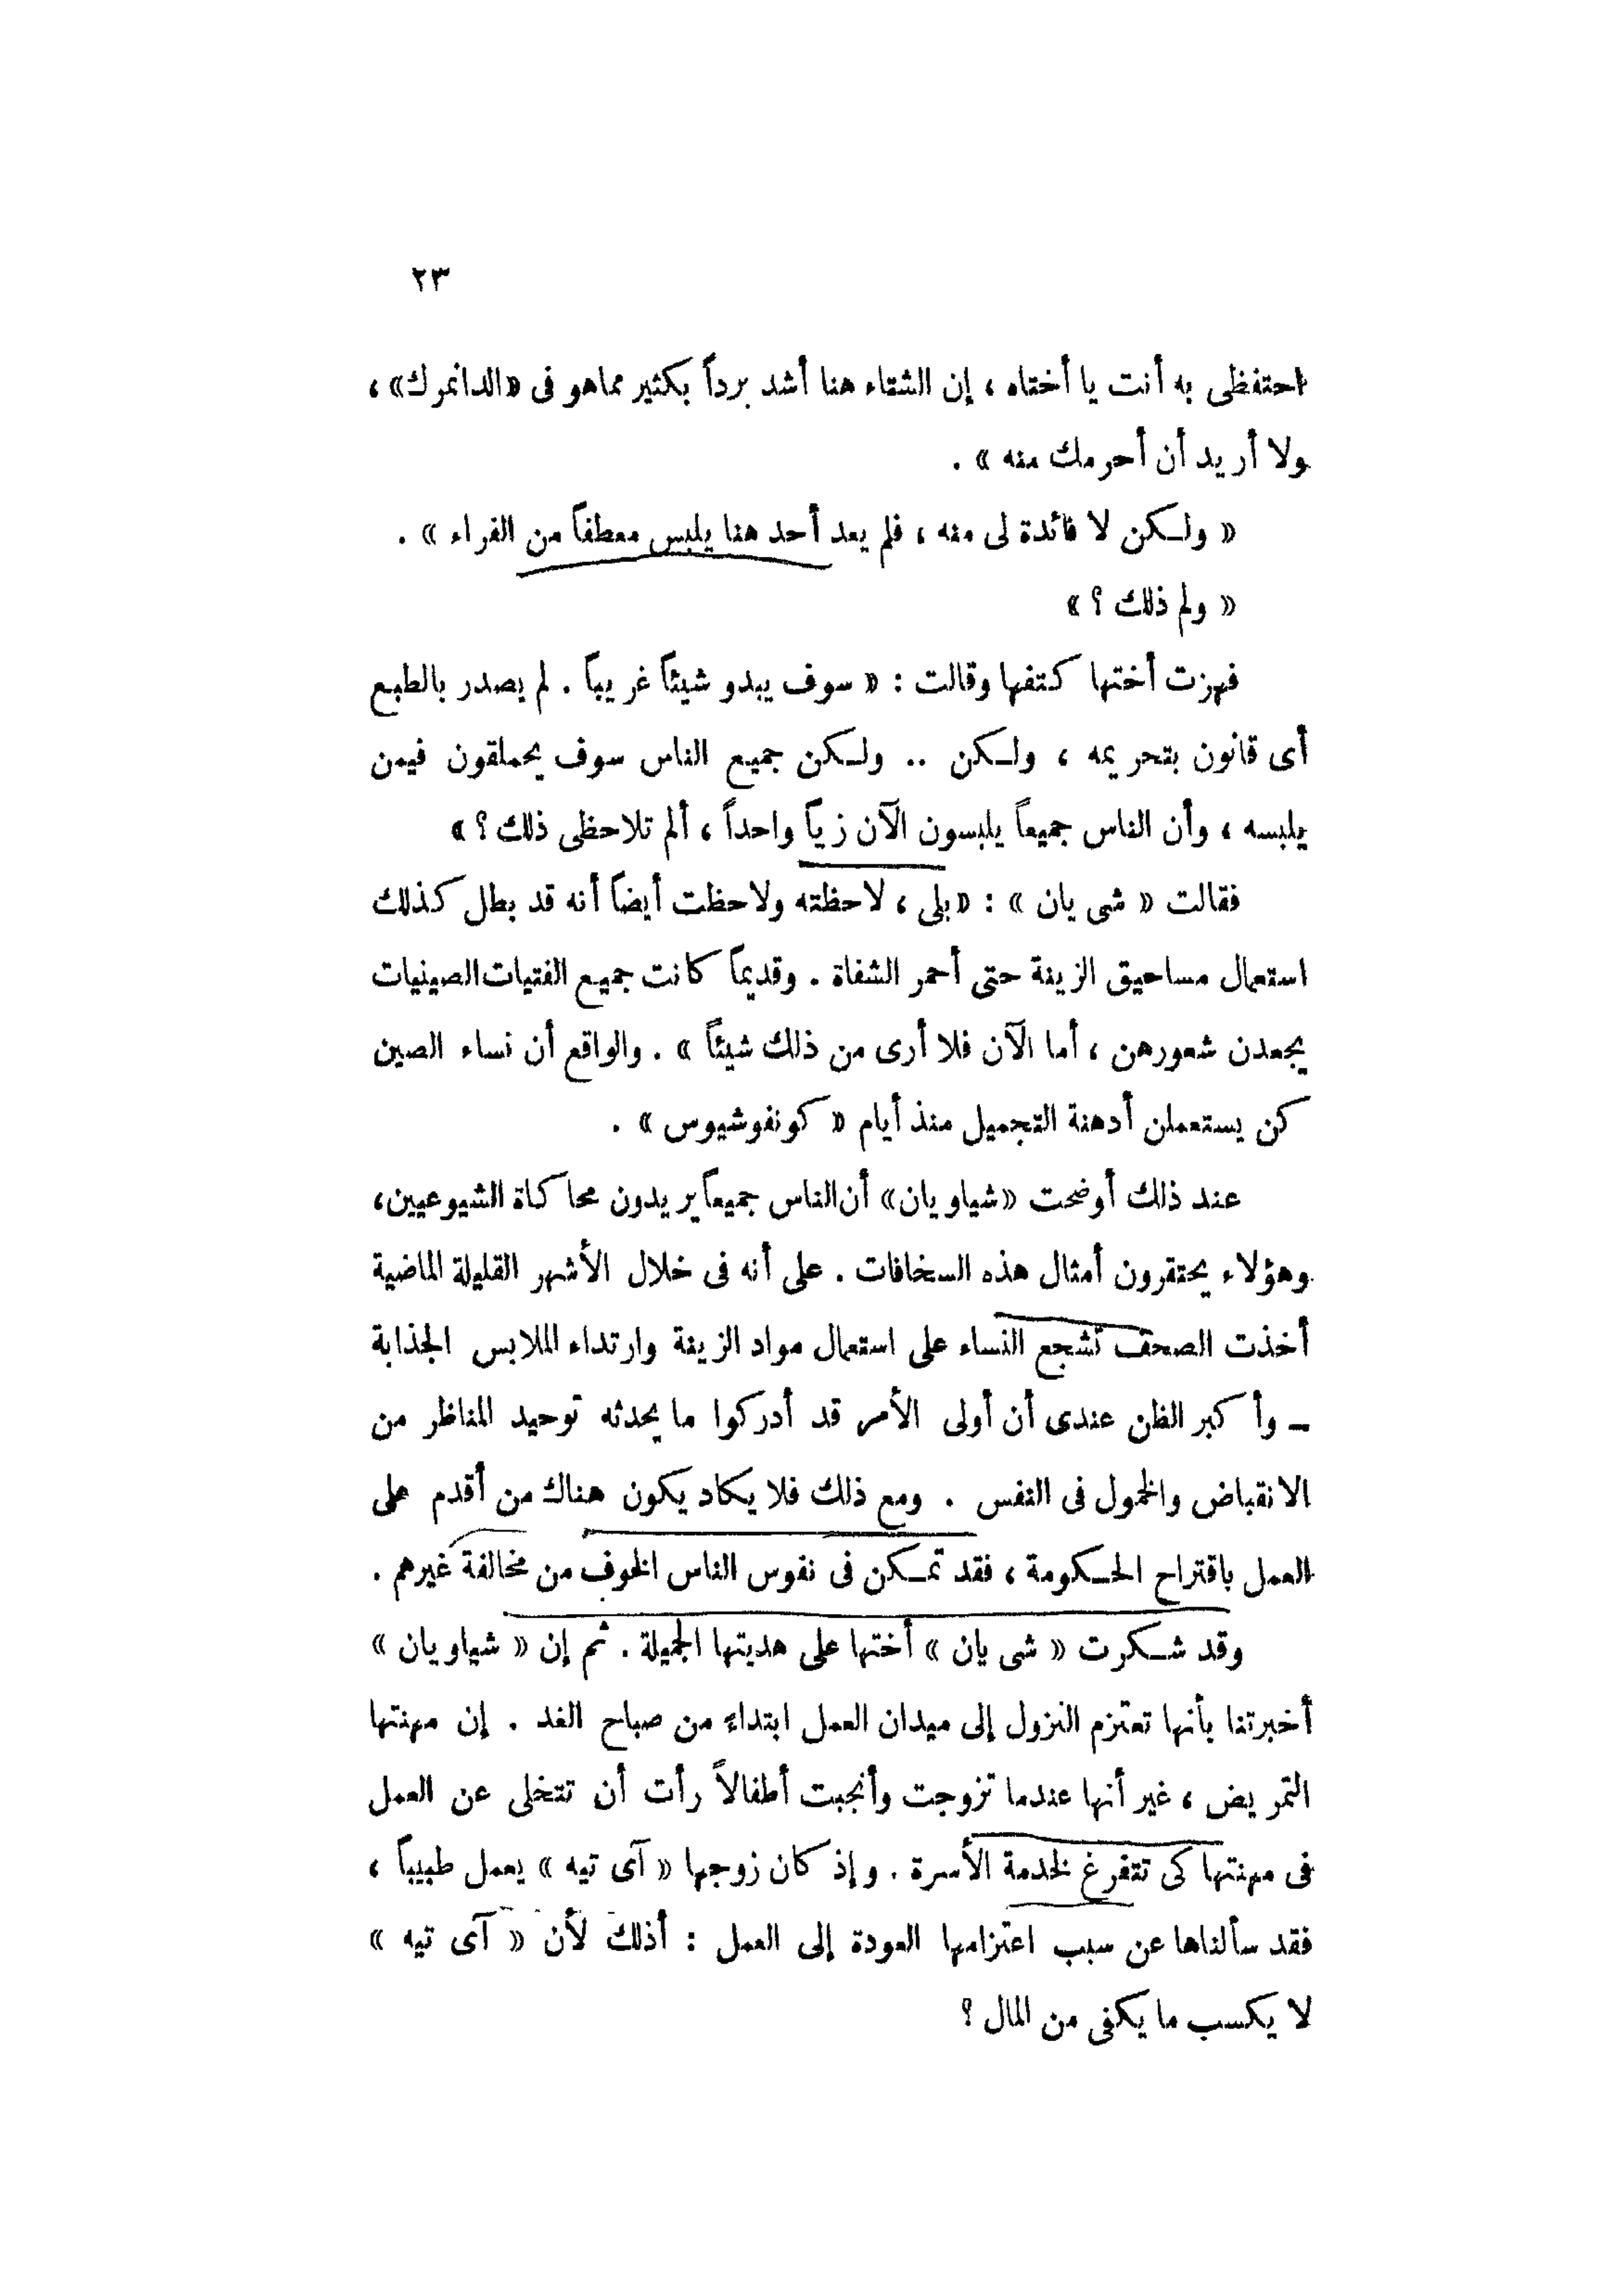 ٢٣
احتفظى به أنت يا أختاه ، إن الشتاء هنا أشد برداً بكثير مماهو فى «الدانمرك» ،
ولا أريد أن أحرمك منه » .
« ولكن لا فائدة لى منه ، فلم يعد أحد هنا يلبس معطفاً من الفراء » .
« ولم ذلك ؟ »
فهزت أختها كتفها وقالت : « سوف يبدو شيئاً غريباً . لم يصدر بالطبع
أى قانون بتحريمه ، ولكن .. ولكن جميع الناس سوف يحملقون فيمن
يلبسه ، وأن الناس جميعاً يلبسون الآن زياً واحداً ، ألم تلاحظى ذلك ؟ »
فقالت « شى يان » : « بلى ، لاحظته ولاحظت أيضاً أنه قد بطل كذلك
استعمال مساحيق الزينة حتى أحمر الشفاة . وقديماً كانت جميع الفتيات الصينيات
يجعدن شعورهن ، أما الآن فلا أرى من ذلك شيئاً » . والواقع أن نساء الصين
كن يستعملن أدهنة التجميل منذ أيام « كونفوشيوس » .
عند ذلك أوضحت «شياويان» أن الناس جميعاً يريدون محاكاة الشيوعيين،
وهؤلاء يحتقرون أمثال هذه السخافات . على أنه فى خلال الأشهر القليلة الماضية
أخذت الصحف تشجع النساء على استعمال مواد الزينة وارتداء الملابس الجذابة
ـ وأكبر الظن عندى أن أولى الأمر قد أدركوا ما يحدثه توحيد المناظر من
الانقباض والخمول فى النفس . ومع ذلك فلا يكاد يكون هناك من أقدم على
العمل باقتراح الحكومة ، فقد تمكن فى نفوس الناس الخوف من مخالفة غيرهم .
وقد شكرت « شى يان » أختها على هديتها الجميلة . ثم إن « شياويان »
أخبرتنا بأنها تعتزم النزول إلى ميدان العمل ابتداء من صباح الغد . إن مهنتها
التمريض ، غير أنها عندما تزوجت وأنجبت أطفالاً رأت أن تتخلى عن العمل
فى مهنتها كى تتفرغ لخدمة الأسرة . وإذ كان زوجها « آى تيه » يعمل طبيباً ،
فقد سألناها عن سبب اعتزامها العودة إلى العمل : أذلك لأن « آى تيه »
لا يكسب ما يكفى من المال ؟